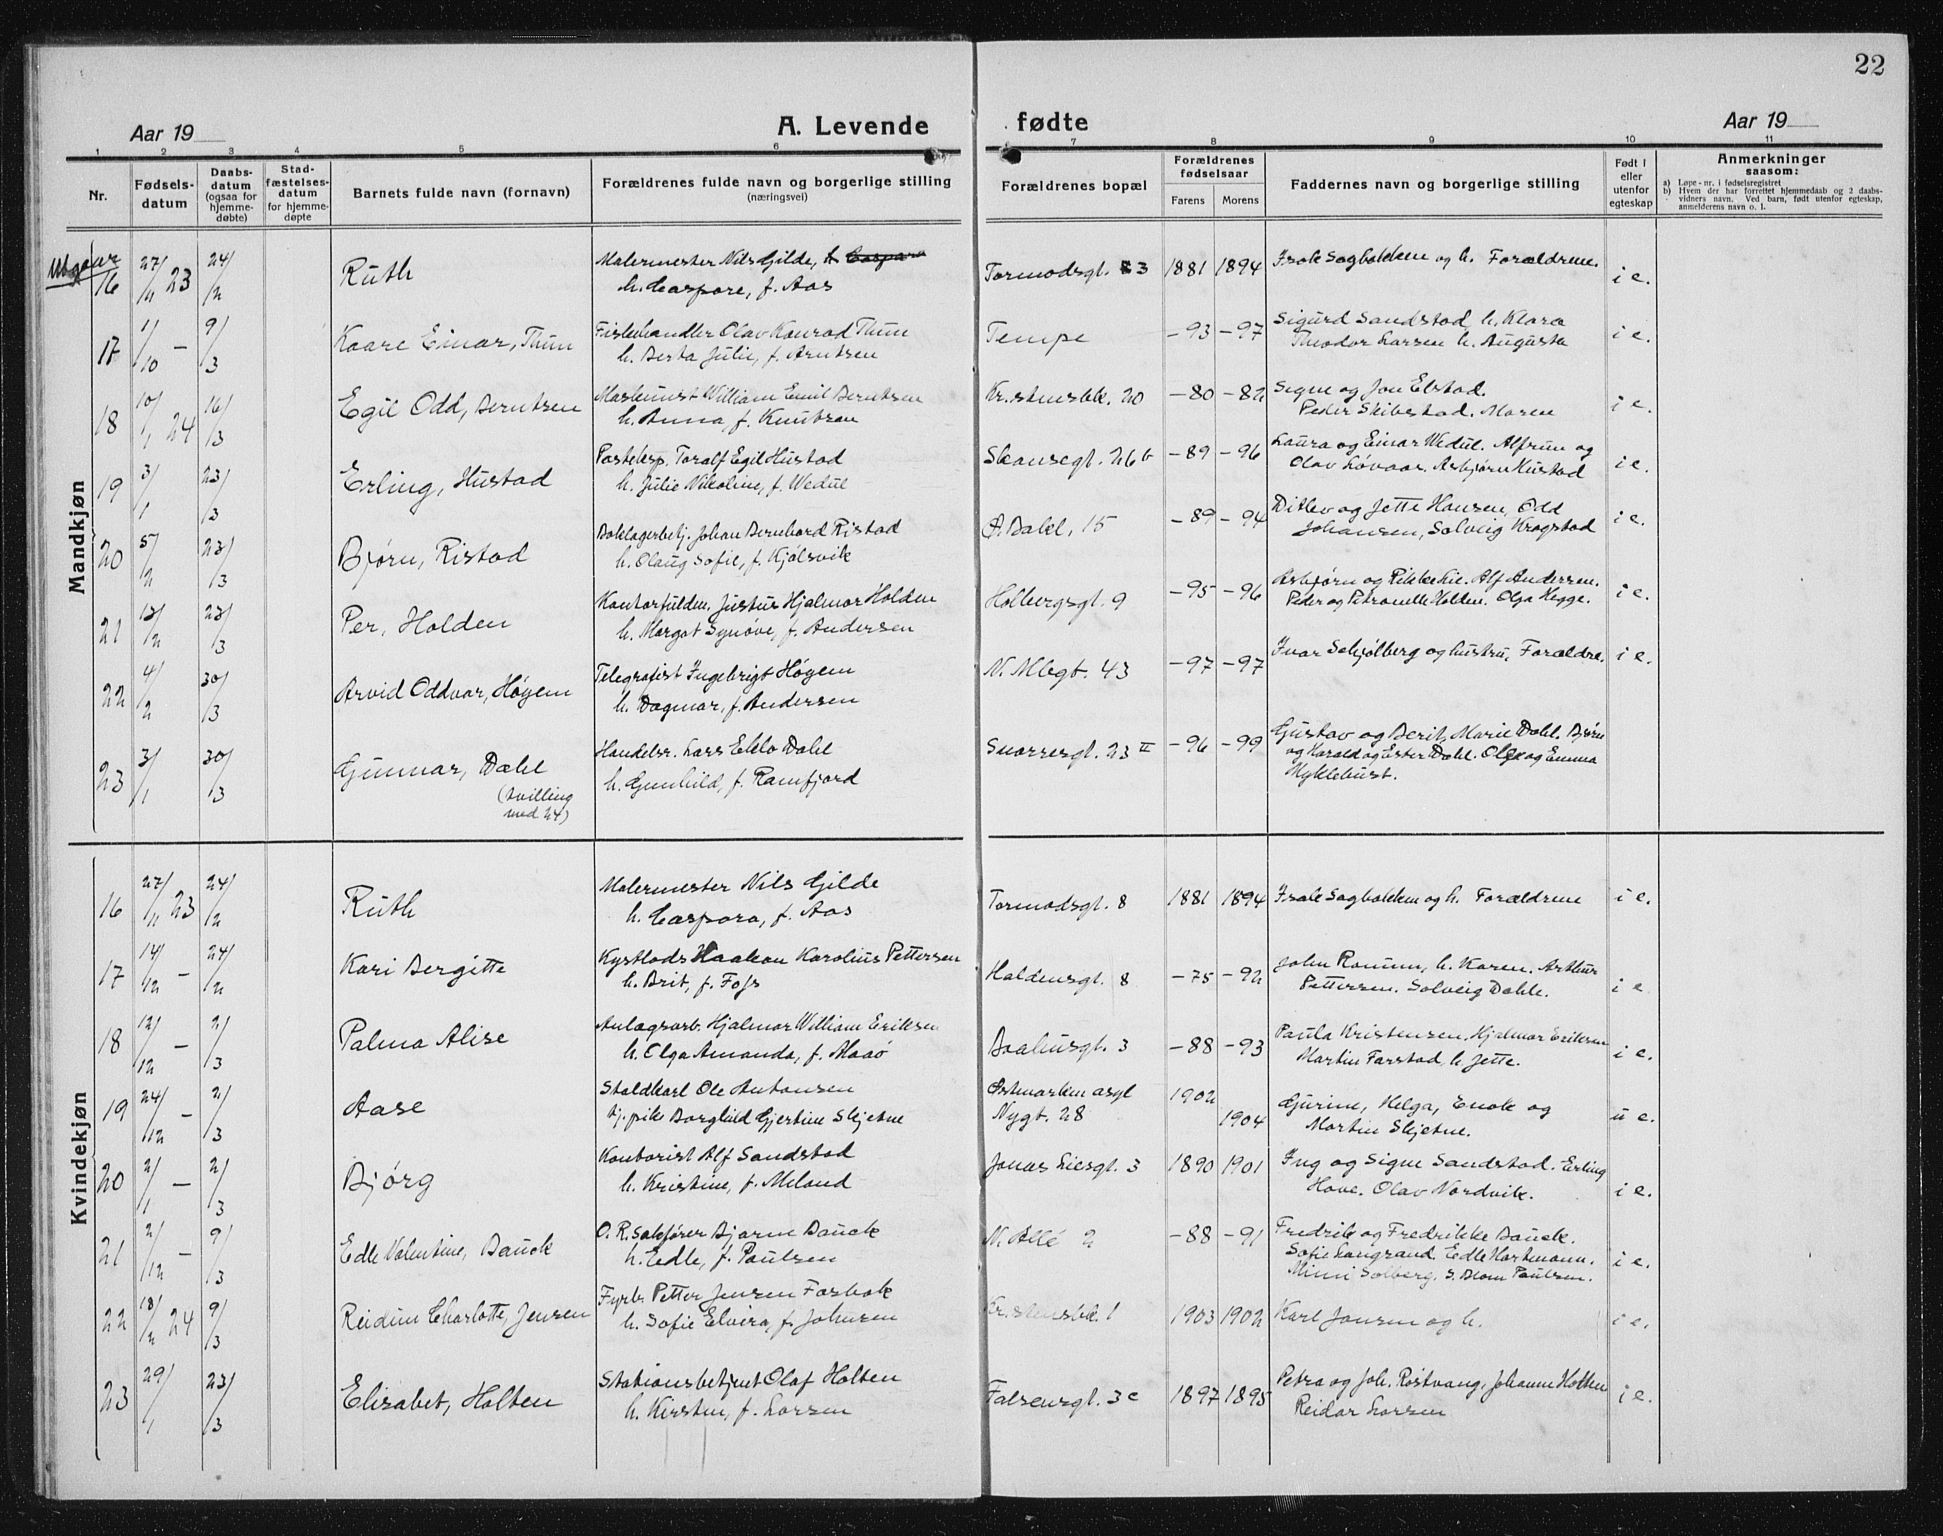 22
Aar 19
A. Levende
fødte
Aar 19
1 2 3 4 5 6 7 8 9 10 11
Nr. Fødsels-datum Daabs-datum (ogsaa for hjemme-døbte) Stad-fæstelses-datum for hjemme-døpte Barnets fulde navn (fornavn) Forældrenes fulde navn og borgerlige stilling (næringsvei) Forældrenes bopæl Forældrenes fødselsaar Farens Morens Faddernes navn og borgerlige stilling Født i eller utenfor egteskap Anmerkninger saasom:
a) Løpe-nr. i fødselsregistret
b) Hvem der har forrettet hjemmedaab og 2 daabs-vidners navn. Ved barn, født utenfor egteskap, anmelderens navn o. l.
Mandkjøn
Utgaar
16 27/11 23 24/2 Ruth Malermester Nils Gilde, h. Caspara
h. Caspare, f. Aas Tormodsgt. 3 1881 1894 Isak Sagbakken og h. Forældrene. i e.
17 1/10 – 9/3 Kaare Einar, Thun Fiskehandler Olav Konrad Thun
h. Berta Julie, f. Arntsen Tempe –93 –97 Sigurd Sandstad, h. Klara
Theodor Larsen h. Augusta i e.
18 10/1 24 16/3 Egil Odd, Berntsen Maskinist William Emil Berntsen
h. Anna, f. Knutsen Kr.stensbk. 20 –80 –82 Signe og Jon Elstad.
Peder Skibestad. Maren i e.
19 3/1 23/3 Erling, Hustad Posteksp. Toralf Egil Hustad
h. Julie Nikoline, f. Wedul Skansegt. 26b –89 –96 Laura og Einar Wedul. Alfrun og
Olav Løvaas. Asbjørn Hustad i e.
20 5/2 23/3 Bjørn, Ristad Boklagerbetj. Johan Bernhard Ristad
h. Olaug Sofie, f. Kjølsvik Ø. Bakl. 15 –89 –94 Ditlev og Jette Hansen, Odd
Johansen, Solveig Krogstad i e.
21 13/2 23/3 Per, Holden Kontorfuldm. Justus Hjalmar Holden
h. Margot Synøve, f. Andersen Holbergsgt. 9 –95 –96 Asbjørn og Rikke Lie. Alf Andersen.
Peder og Petronelle Holden. Olga Hegge. i e.
22 4/2 30/3 Arvid Oddvar, Høyem Telegrafist Ingebrigt Høyem
h. Dagmar, f. Andersen N. Mlegt. 43 –97 –97 Ivar Schjølberg og hustru, Forældre. i e.
23 3/1 30/3 Gunnar, Dahl
(tvilling
med 24) Handelsr. Lars Eklo Dahl
h. Gunhild, f. Ramfjord Snorresgt. 23 II –96 –99 Gustav og Berit Marie Dahl. Bjørn
og Harald og Ester Dahl. Olga og Emma
Myklebust.
Kvindekjøn
16 27/11 23 24/2 Ruth Malermester Nils Gilde
h. Caspara, f. Aas Tormodsgt. 8 1881 1894 Isak Sagbakken og h. Forældrene i e.
17 14/12 – 24/2 Kari Bergitte Kystlods Haakon Karolius Pettersen
h. Brit, f. Foss Haldensgt. 8 –75 –92 John Ramum, h. Karen. Arthur
Pettersen. Solveig Dahle. i e
18 12/12 – 2/3 Palma Alise Anlægsarb. Hjalmar William Eriksen
h. Olga Amanda, f. Maaø Baahusgt. 3 –88 –93 Paula Kristensen. Hjalmar Eriksen
Martin Farstad h. Jette. i e.
19 24/12 – 2/3 Aase Staldkarl Ole Antonsen
tj. pike Borghild Gjertine Skjetne Østmarken asyl
Nygt. 28 1902 1904 Gurine, Helga, Enok og
Martin Skjetne. u e.
20 2/1 – 2/3 Bjørg Kontorist Alf Sandstad
h. Kristine, f. Meland Jonas Liesgt. 3 1890 1901 Ing og Signe Sandstad. Erling
Hove. Olav Nordvik. i e.
21 2/12 – 9/3 Edle Valentine, Bauck O. R. Sakfører Bjarne Bauck
h. Edle, f. Paulsen N. Allé 2 –88 –91 Fredrik og Fredrikke Bauck.
Sofie Langrand. Edle Hartmann.
Mimi Solberg. S. Blom Paulsen. i e.
22 18/2 24 9/3 Reidun Charlotte, Jensen Fyrb. Petter Jensen Farbak
h. Sofie Elvira, f. Johnsen Kr.stensbk. 1 1903 1902 Karl Jansen og h. i e.
23 29/1 23/3 Elisabet, Holten Stationsbetjent Olaf Holten
h. Kirsten, f. Larsen Falsensgt. 3c 1897 1895 Petra og Joh. Røstvang, Johanne Holten
Reidar Larsen i e.